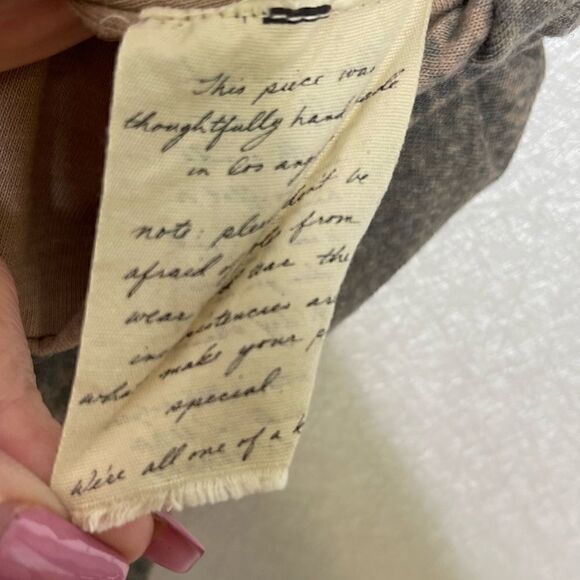 This piece was
thoughtfully handmade
in los ang
note: please don't be
afraid of holes from
wear the
inconsistencies are
what make your p
special.
We're all one of a k